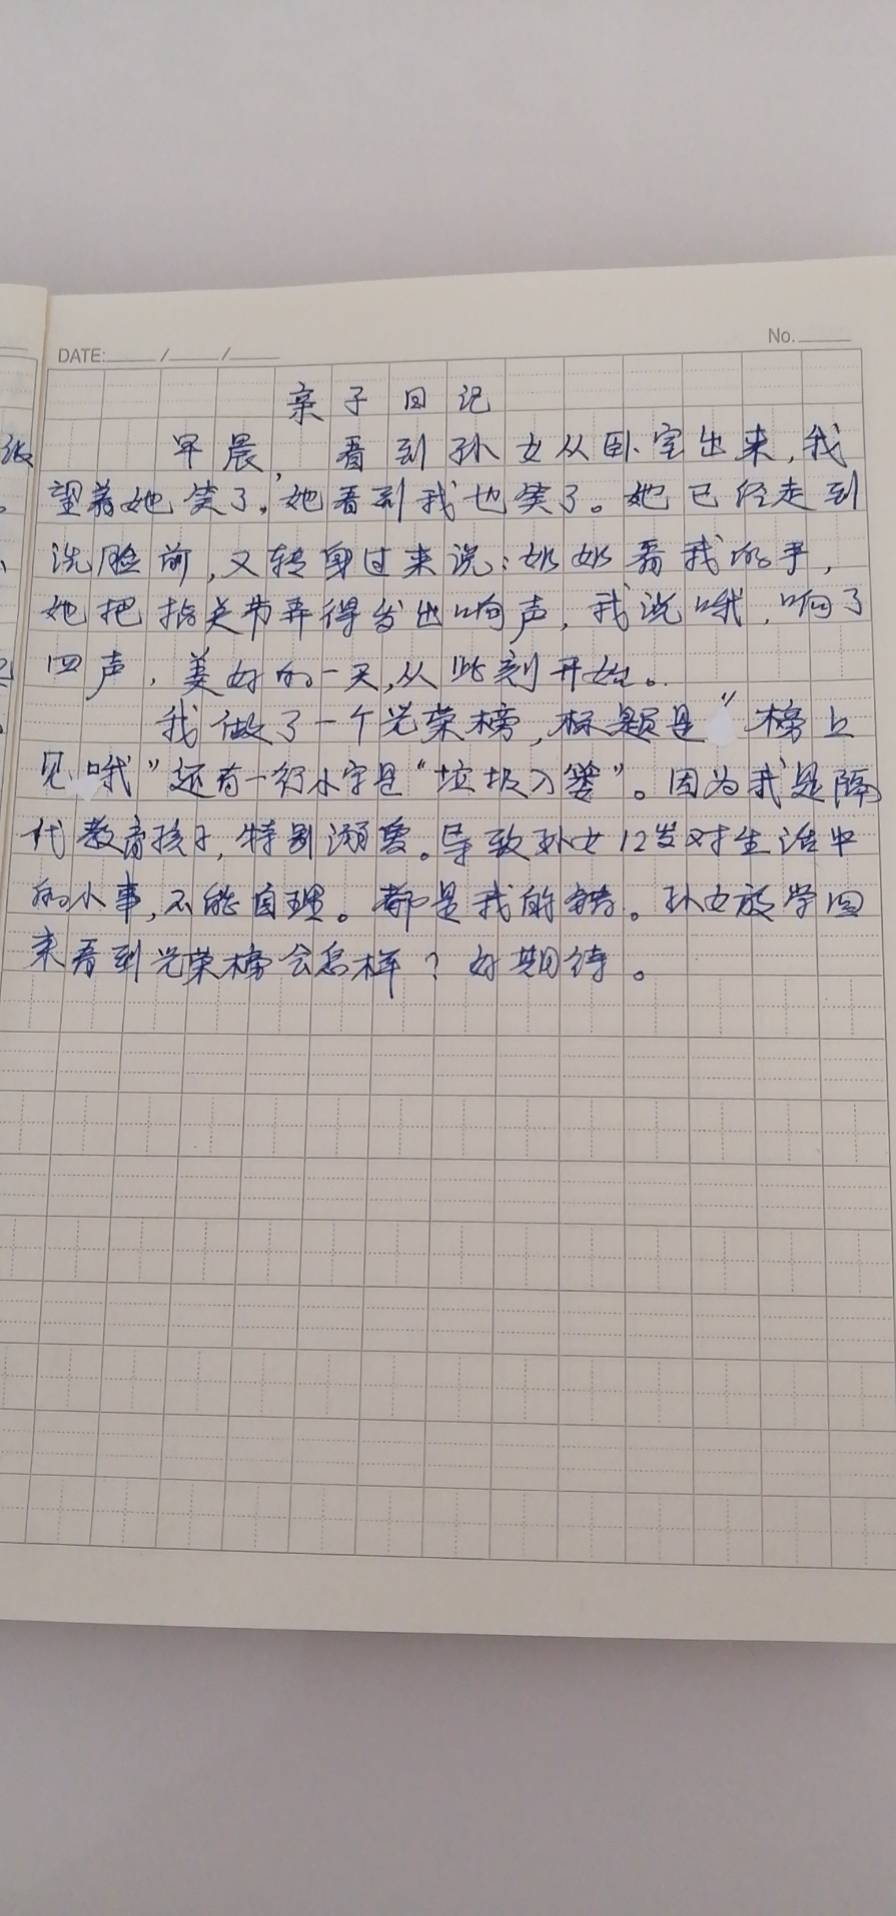 No.
DATE: / /
亲子日记
早晨,看到孙女从卧室出来,我
望着她笑了,她看到我也笑了。她已经走到
洗脸前,又转身过来说:奶奶看我的手,
她把指关节弄得发出响声,我说哦,响了
四声,美好的一天,从此刻开始。
我做了一个光荣榜,标题是“榜上
见哦”还有一行小字是“垃圾入篓”。因为我是隔
代教育孩子,特别溺爱。导致孙女12岁对生活中
的小事,不能自理。都是我的错。孙女放学回
来看到光荣榜会怎样?好期待。